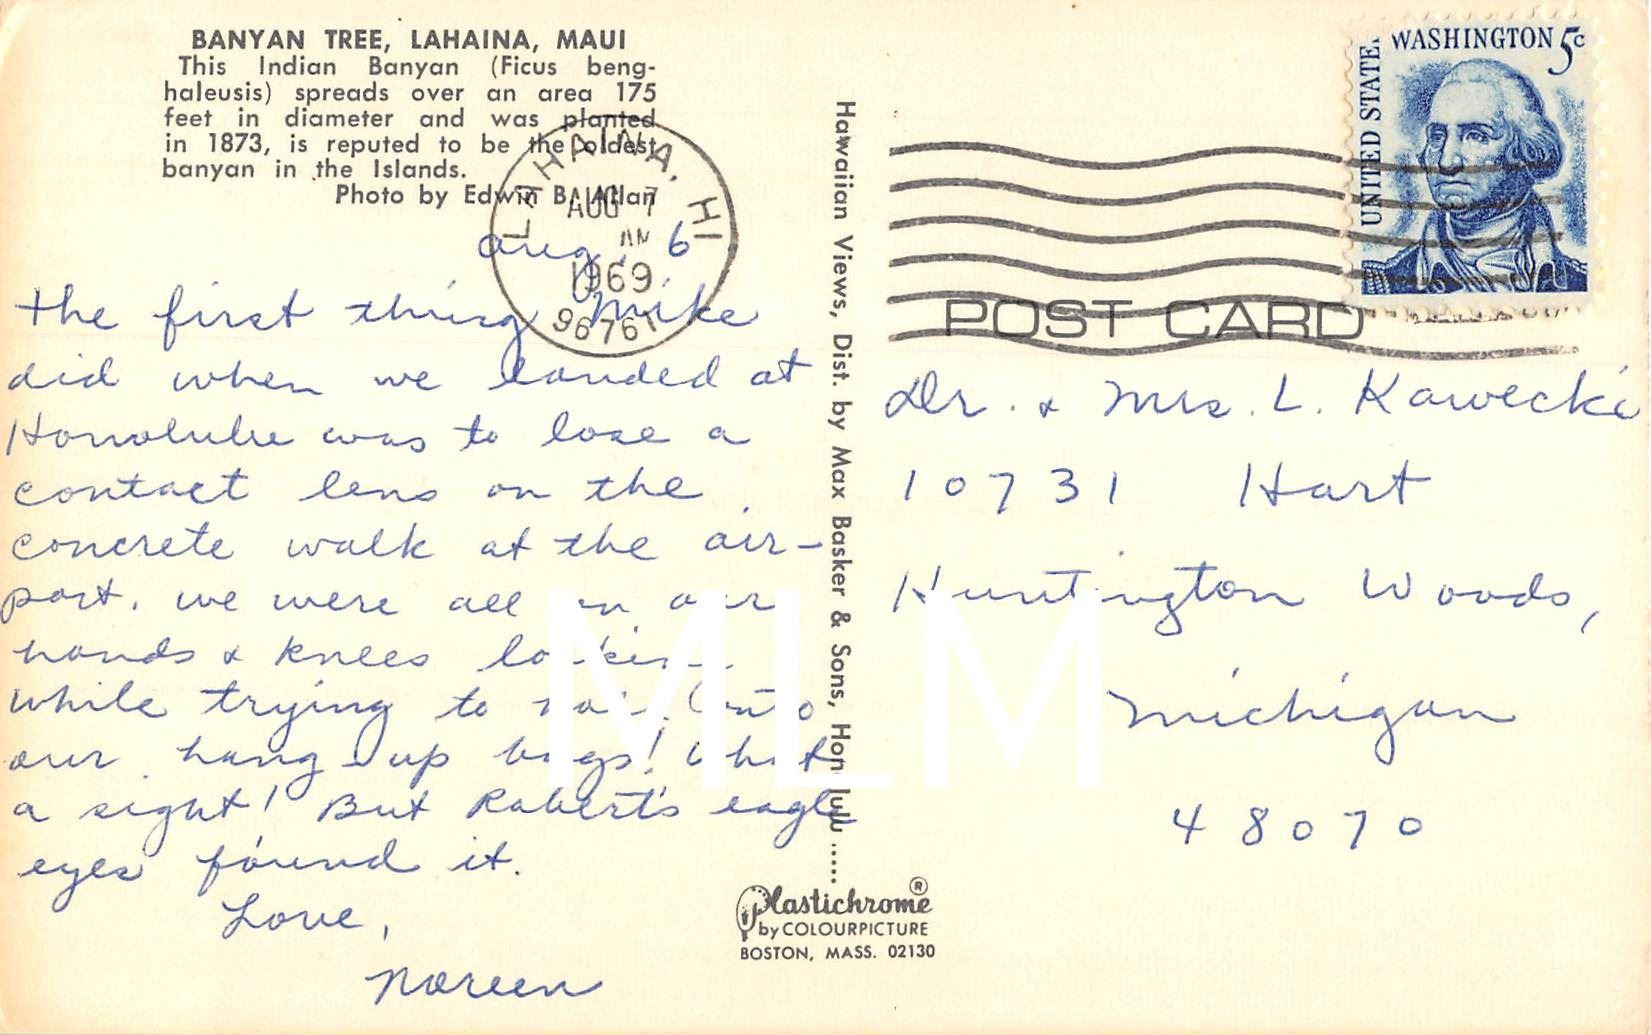 BANYAN TREE, LAHAINA, MAUI
This Indian Banyan (Ficus beng-
haleusis) spreads over an area 175
feet in diameter and was planted
in 1873, is reputed to be the oldest
banyan in the Islands.
Photo by Edwin B. Allan
LAHAINA, HI
AUG 7
AM
1969
96761
Aug. 6
The first thing Mike
did when we landed at
Honolulu was to lose a
contact lens on the
concrete walk at the air-
port. We were all on our
hands & knees lookin
while trying to hail onto
our hang up bags! What
a sight! But Robert's eagle
eyes found it.
Love,
Noreen
Hawaiian Views, Dist. by Max Basker & Sons, Honolulu .....
Plastichrome ®
by COLOURPICTURE
BOSTON, MASS. 02130
UNITED STATES
WASHINGTON 5c
POST CARD
Dr. & Mrs. L. Kawecki
10731 Hart
Huntington Woods,
Michigan
48070
MLM